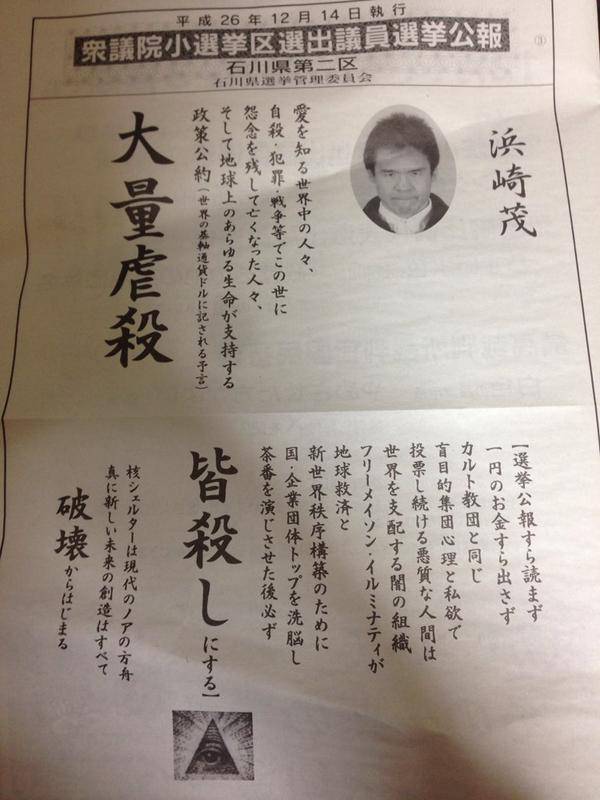 平成26年12月14日執行
衆議院小選挙区選出議員選挙公報
③
石川県第二区
石川県選挙管理委員会
浜崎茂
愛を知る世界中の人々、
自殺・犯罪・戦争等でこの世に
怨念を残して亡くなった人々、
そして地球上のあらゆる生命が支持する
政策公約(世界の基軸通貨ドルに記される予言)
大量虐殺
【選挙公報すら読まず
一円のお金すら出さず
カルト教団と同じ
盲目的集団心理と私欲で
投票し続ける悪質な人間は
世界を支配する闇の組織
フリーメイソン・イルミナティが
地球救済と
新世界秩序構築のために
国・企業団体トップを洗脳し
茶番を演じさせた後必ず
皆殺しにする】
核シェルターは現代のノアの方舟
真に新しい未来の創造はすべて
破壊からはじまる